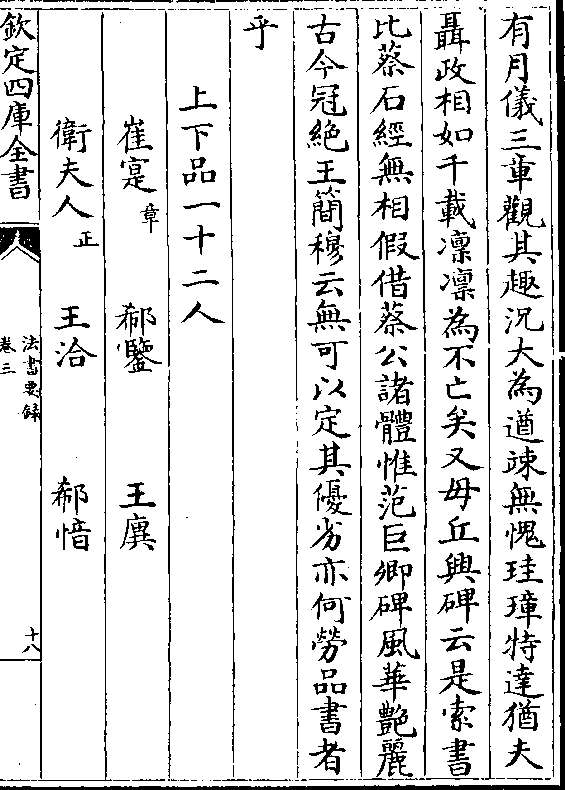 有月儀三章觀其趣況大為遒竦無愧珪璋特達猶夫
聶政相如千載凛凛為不亡矣又毋丘興碑云是索書
比蔡石經無相假借蔡公諸體惟范巨卿碑風華艶麗
古今冠絶王簡穆云無可以定其優劣亦何勞品書者
乎
上下品一十二人
崔寔章 郗鑒 王廙
衛夫人正 王洽 郗愔
欽定四庫全書
法書要錄
卷三
十八